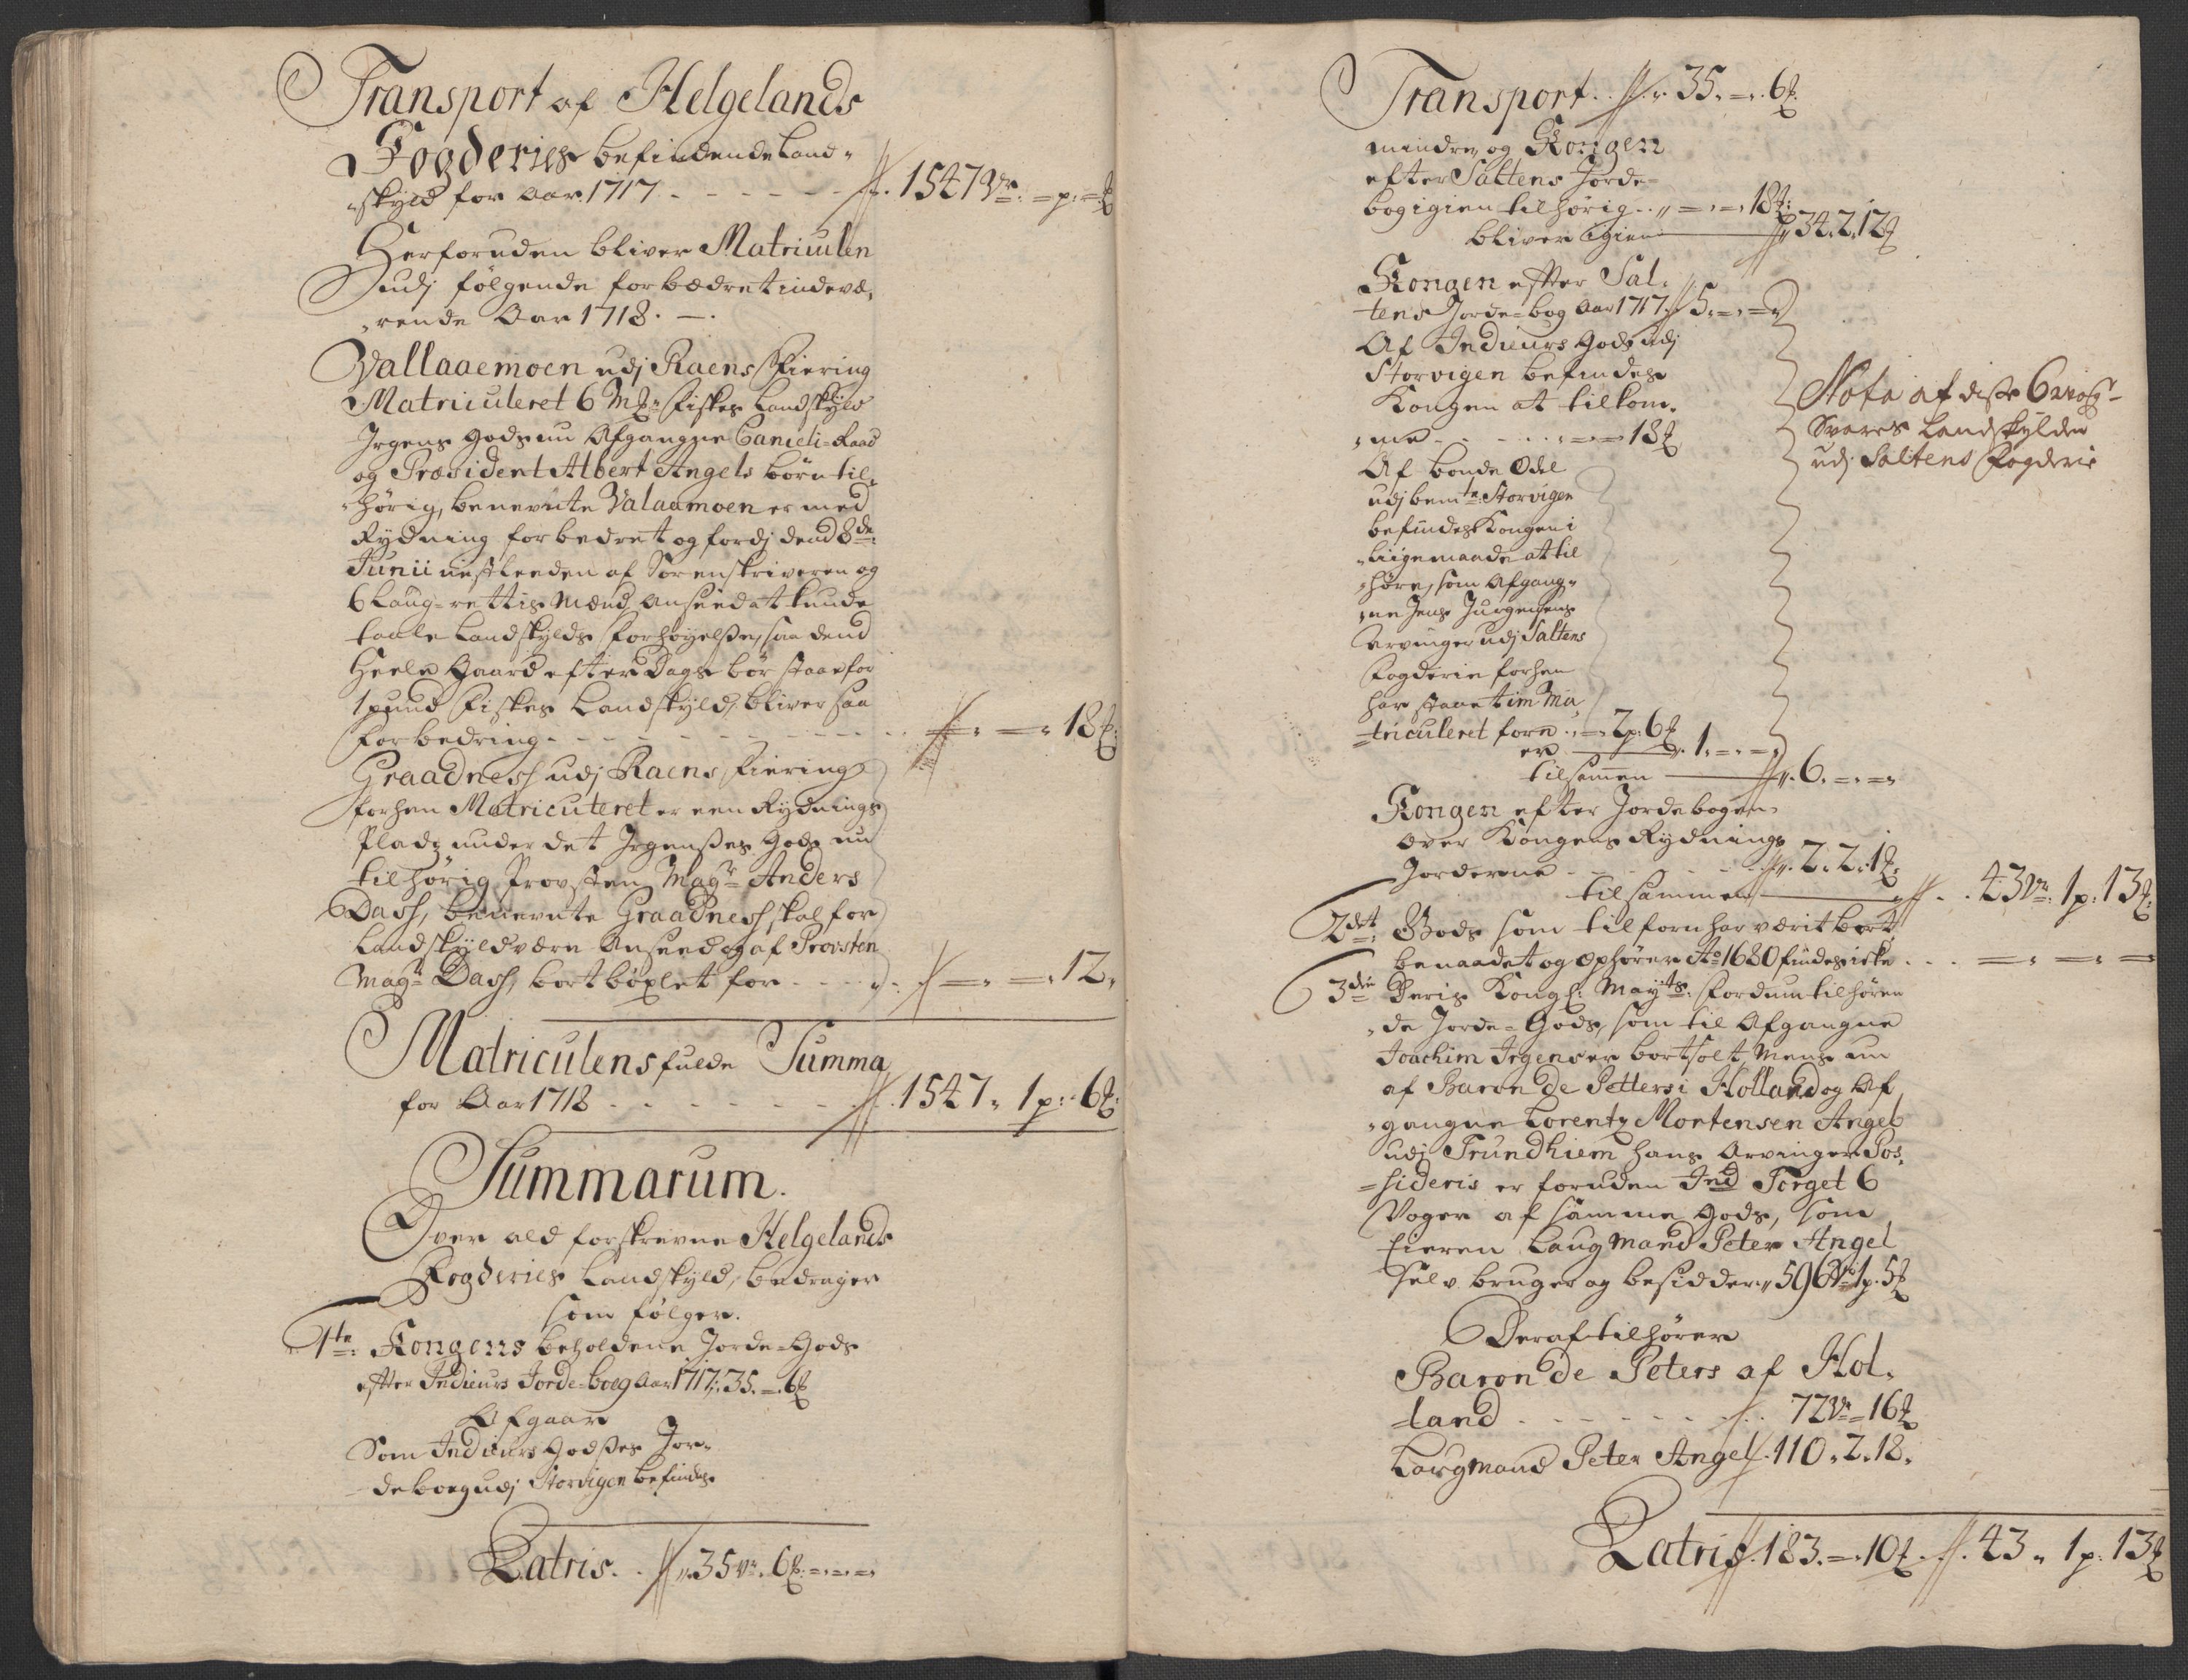 Transport af Helgelands
Fogderies befindende Land-
skyld for Aar 1717 - - - - - - 1547 Vr: = p: = ℔
Herforuden bliver Matriculen
udj følgende forbædret indevæ-
rende Aar 1718. —.
Vallaaemoen udj Raens Fiering
Matriculeret 6 M℔: Fiskes Landskyld
Irgens Gods nu Afgangne Cancli-Raad
og Præsident Albert Angels børn til-
hørig, benevnte Valaamoen er med
Rydning forbedret og fordj dend 8de:
Junii nestleeden af Sorenskriveren og
6 Laug-rettis Mænd Anseed at kunde
taale Landskylds Forhøyelse, saa dend
Heele Gaard efter Dags bør staae for
1 pund Fiskes Landskyld, bliver saa
forbedring - - - - - - - - - = „ = „ 18 ℔:
Graadnesh udj Raens Fiering
forhen Matriculeret er een Rydnings
Pladz under det Irgenses Gods nu
tilhørig Provsten Magr: Anders
Dash, benevnte Graadnesh skal for
Landskyld være Anseed og af Provsten
Magr: Dash, bortböxlet for - - - - = „ = „ 12 „
Matriculens fulde Summa
for Aar 1718 - - - - - - 1547 „ 1 p: 6 ℔:
Summarum.
Over ald forskrevne Helgelands
Fogderies Landskyld, bedrager
som følger.
1te: Kongens beholdene Jorde-Gods
efter Indieurs Jorde-boeg Aar 1717: 35. = 6 ℔
Afgaar
Som Indieurs Godses Jor-
deboeg udj Storvigen befindes
Latris. . 35 Vr. 6 ℔: = „ = „ = „
Transport. . 35. = „ 6 ℔:
mindre, og Kongen
efter Saltens Jorde-
bog igien tilhørig . . „ = „ = „ 18 ℔:
bliver igien — 34. 2. 12 ℔
Kongen efter Sal-
tens Jorde-bog Aar 1717: 5. = „ = „
Af Indieurs Gods udj
Storvigen befindes
Kongen at tilkom-
me - - - - - = „ = 18 ℔
Af bonde Odel
udj bemte: Storvigen
befindes Kongen i
liigemaade at til
høre, som Afgang-
ne Jens Jurgensens
Arvinger udj Saltens
Fogderie forhen
har staaet im Ma-
triculeret forn . = 2 p. 6 ℔
er — 1. = „ = „
tilsamen — 6. = „ = „
Nota af disse 6 voger
Svares Landskylden
udj Saltens Fogderie
Kongen efter Jordebogen
over Kongens Rydnings
Jorderne - - - - - 2. 2. 1 ℔:
tilsammen — 43 Vr: 1 p: 13 ℔:
2det: Gods som tilforn har værit bort
benaadet og ophører Ao 1680 findes icke . . . = „ = „ =
3die Deris Kongl: Mayts: fordum tilhøren
de Jorde-Gods, som til Afgangne
Joachim Irgenser bortsolt, Mens nu
af Baron De Petters i Holland og Af
gangne Lorentz Mortensen Angel
udj Trundhiem hans Arvinger Pos-
sideris er foruden Ind Torget 6
Voger af samme Gods, som
Eieren Laugmand Peter Angel
selv bruger og besidder „ 596 Vr 1 p. 5 ℔
Deraf tilhører
Baron De Peters af Hol-
land - - - - - - 72 Vr = 16 ℔
Laugmand Peter Angel . 110. 2. 18.
Latris . 183. = „ 10 ℔ . . 43 „ 1 p: 13 ℔